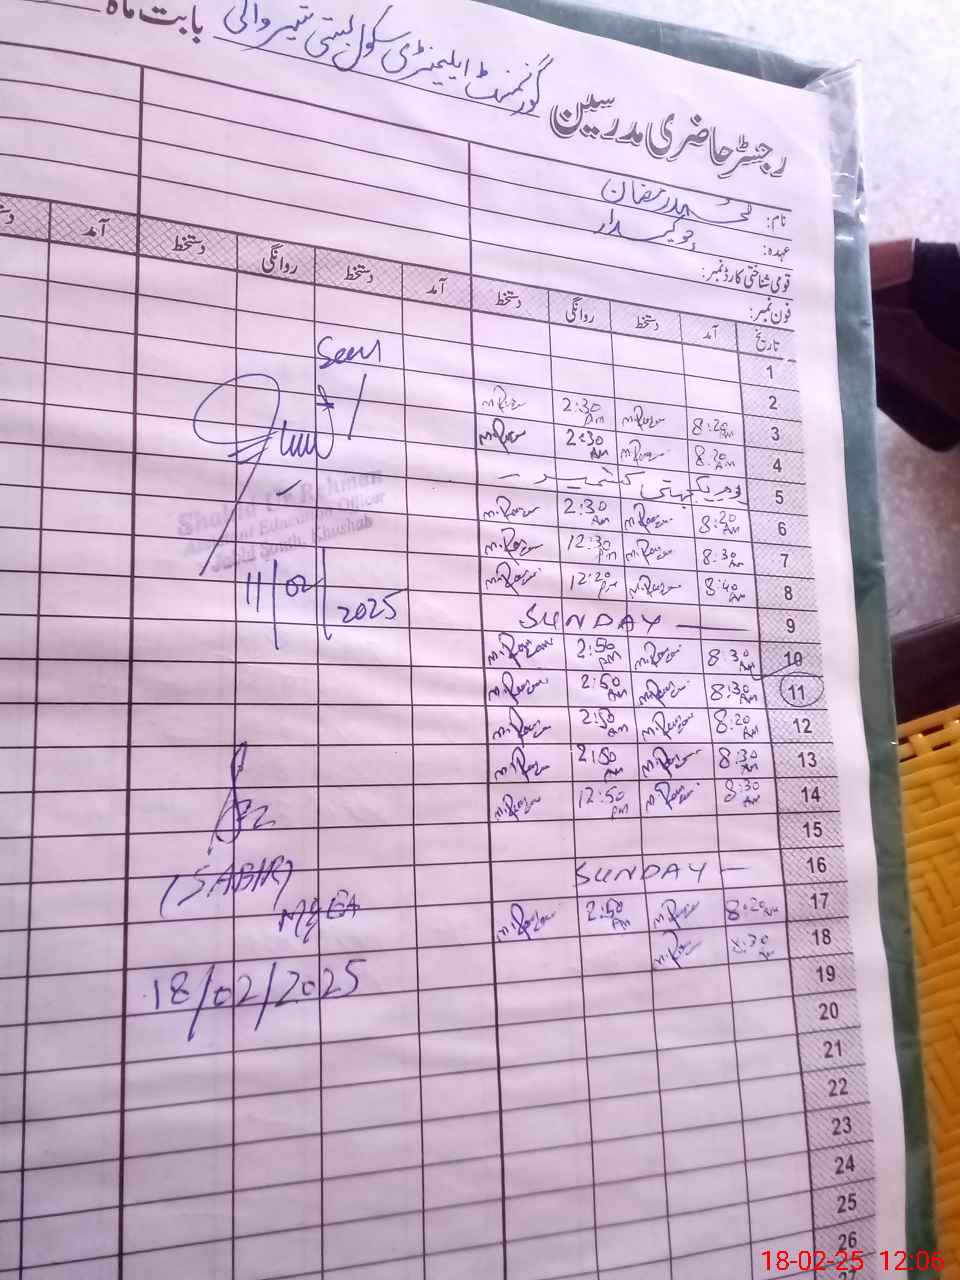 رجسٹر حاضری مدرسین گورنمنٹ ایلیمنٹری سکول بستی شیر والی بابت ماہ
نام: محمد رمضان
عہدہ: چوکیدار
قومی شناختی کارڈ نمبر:
فون نمبر:
تاریخ آمد دستخط روانگی دستخط آمد دستخط روانگی دستخط آمد
1
2
3 8:20 AM 2:30 PM
4 8:20 AM 2:30 AM
5 یوم یکجہتی کشمیر
6 8:20 AM 2:30 AM
7 8:30 AM 12:30 PM
8 8:40 AM 12:20 PM
9 SUNDAY
10 8:30 AM 2:50 PM
11 8:30 AM 2:50 AM
12 8:20 AM 2:50 am
13 8:30 AM 2:50 AM
14 8:30 AM 12:50 PM
15
16 SUNDAY
17 8:20 AM 2:50 PM
18 8:30 AM
19
20
21
22
23
24
25
26
27
Seen
Shahid Ur Rehman
Assistant Education Officer
South, Khushab
11/02/2025
(SABIR)
MEA
18/02/2025
18-02-25 12:06